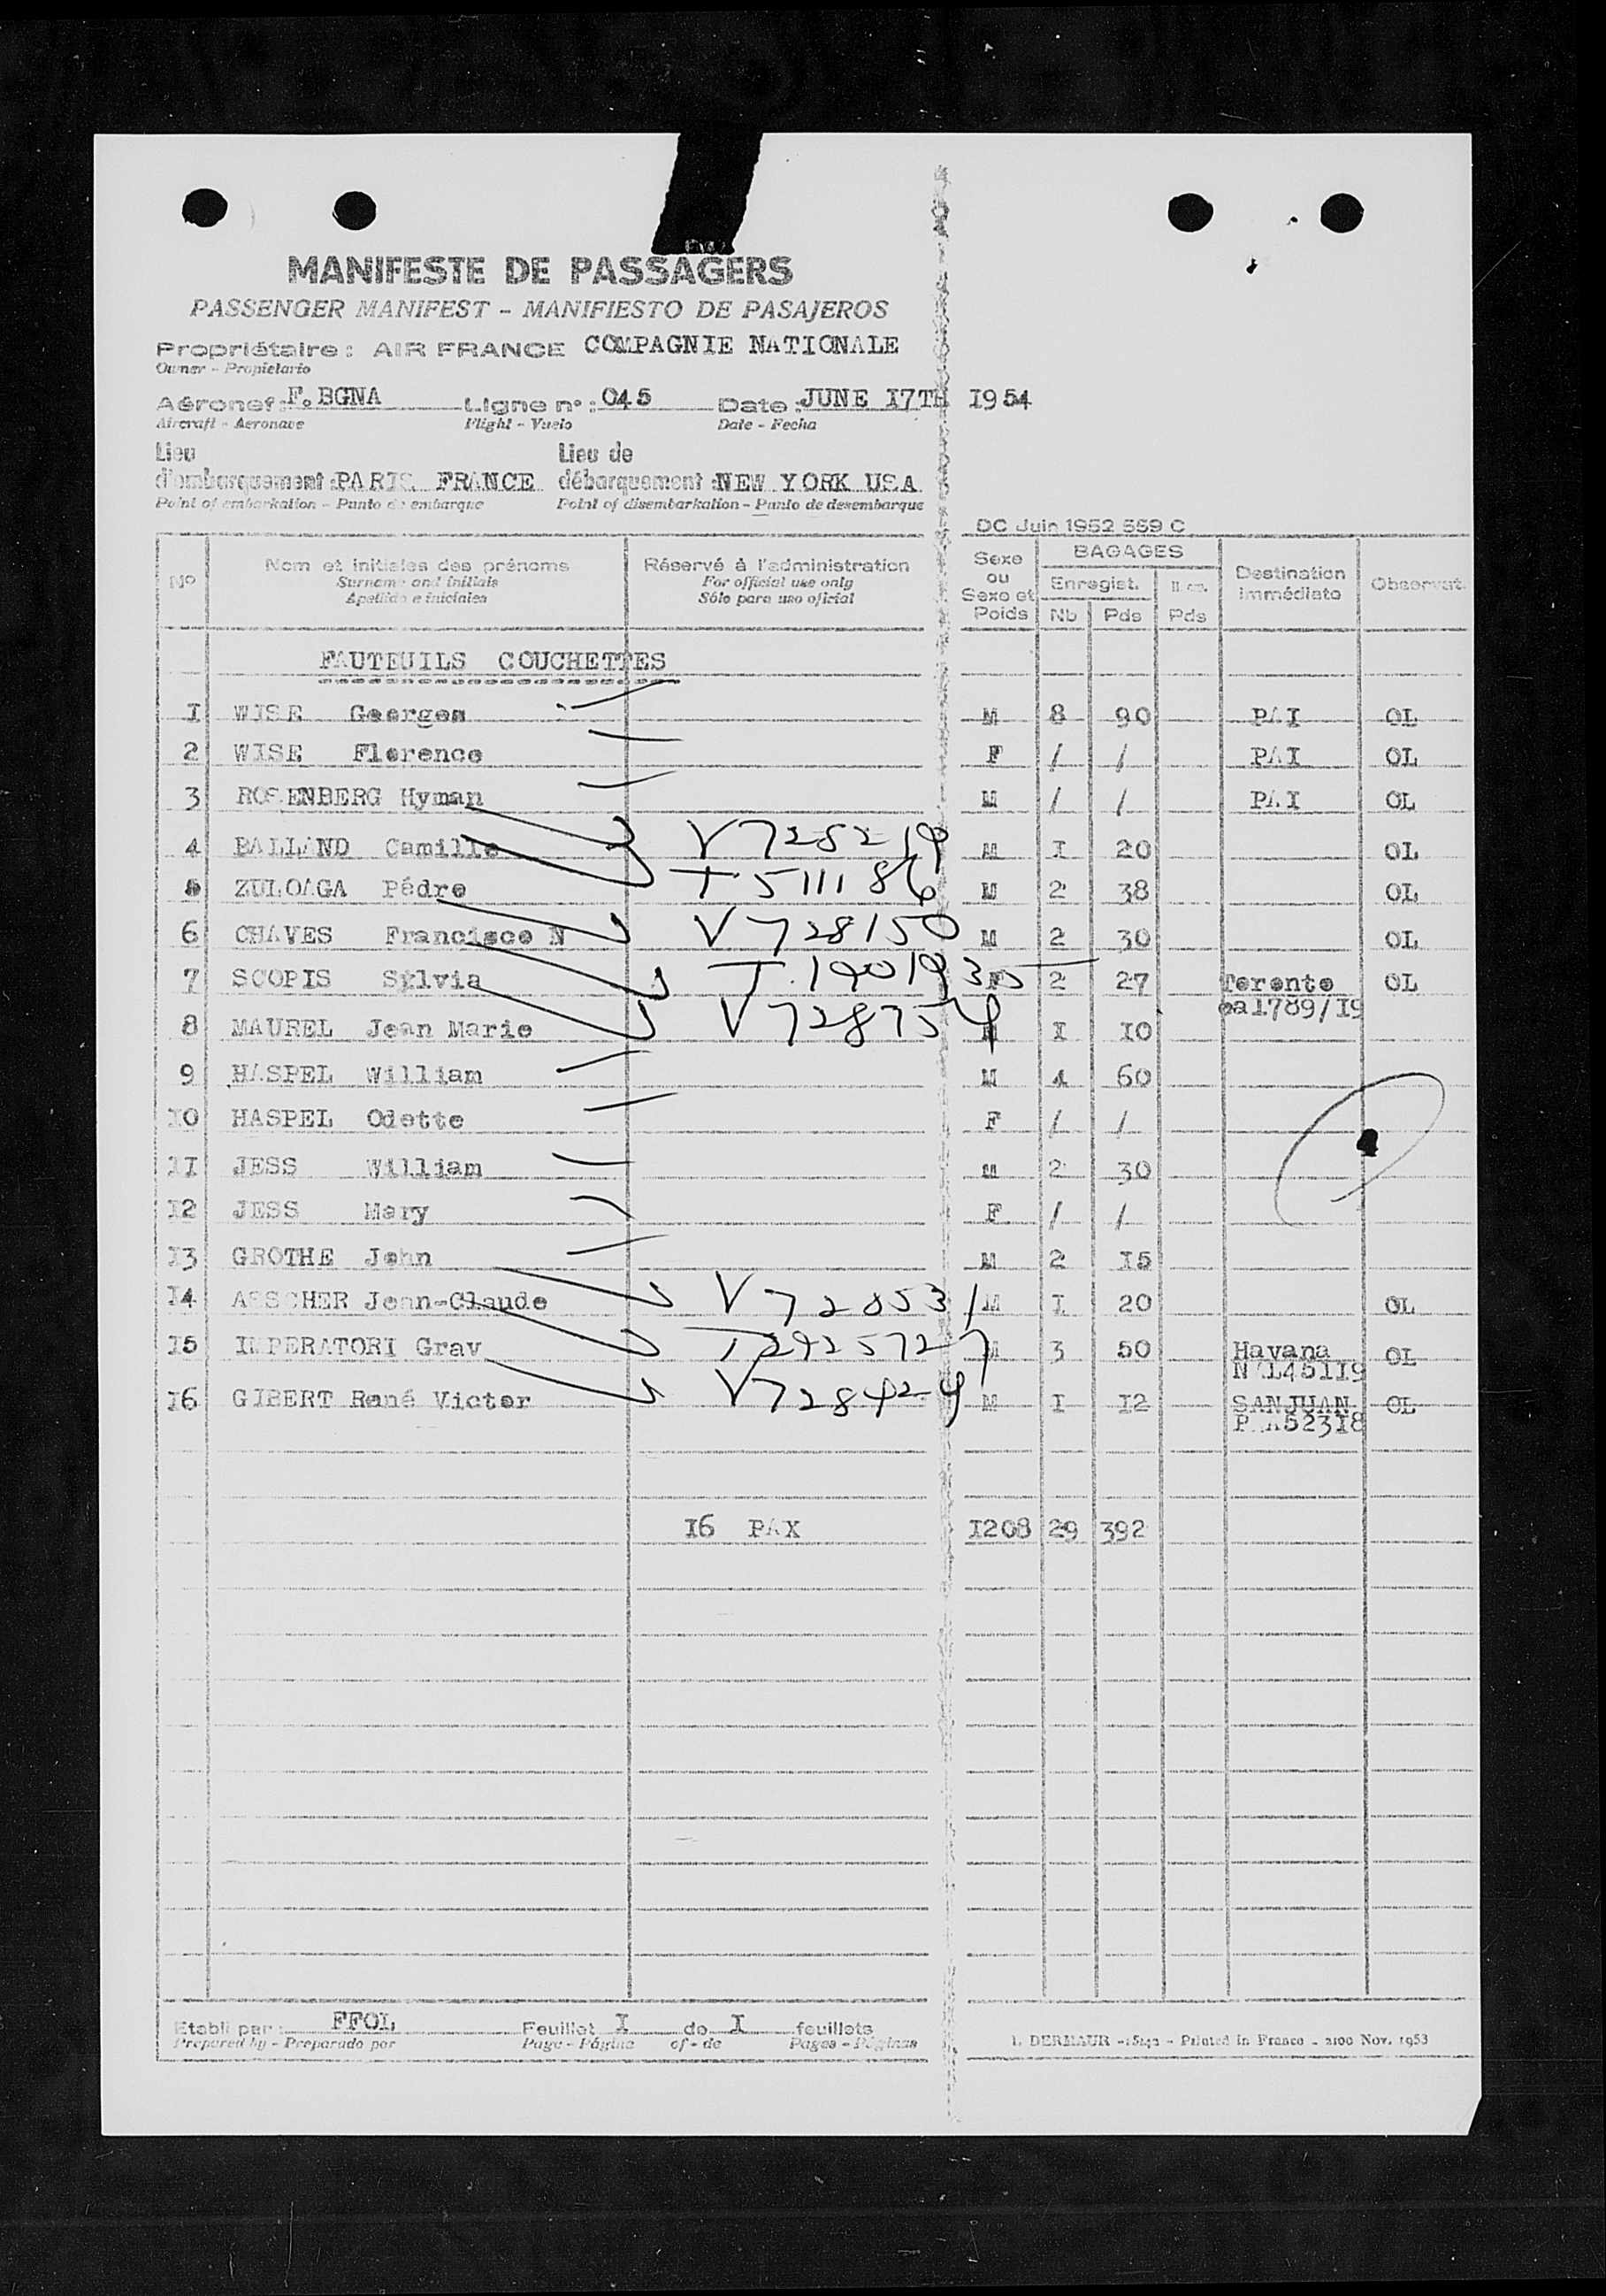 MANIFESTE DE PASSAGERS
PASSENGER MANIFEST - MANIFIESTO DE PASAJEROS
Propriétaire : AIR FRANCE COMPAGNIE NATIONALE
Owner - Propietario
Aéronef : F.BGNA Ligne n° : 045 Date : JUNE I7TH I954
Aircraft - Aeronave Flight - Vuelo Date - Fecha
Lieu Lieu de
d'embarquement : PARIS FRANCE débarquement : NEW YORK USA
Point of embarkation - Punto de embarque Point of disembarkation - Punto de desembarque
DC Juin 1952 559 C
N° Nom et initiales des prénoms Réservé à l'administration Sexe ou Sexe et Poids BAGAGES Destination immédiate Observat.
Surname and initials For official use only Enregist.
Apellido e iniciales Sólo para uso oficial Nb Pds Pds
FAUTEUILS COUCHETTES
I WISE Georges M 8 90 PAI OL
2 WISE Florence F / / PAI OL
3 ROSENBERG Hyman M / / PAI OL
4 BALLAND Camille V728219 M I 20 OL
5 ZULOAGA Pédro T511186 M 2 38 OL
6 CHAVES Francisco N V728150 M 2 30 OL
7 SCOPIS Sylvia T.1901935 F 2 27 Toronto OL
ea1789/I9
8 MAUREL Jean Marie V728754 M I IO
9 HASPEL William M 4 60
IO HASPEL Odette F / /
II JESS William M 2 30
I2 JESS Mary F / /
I3 GROTHE John M 2 I5
I4 ASSCHER Jean-Claude V728531 M I 20 OL
I5 IMPERATORI Grav T2925727 M 3 50 Havana OL
NA145119
I6 GIBERT René Victor V728424 M I I2 SANJUAN OL
PAA523I8
I6 PAX I208 29 392
Etabli par : FFOL Feuillet I de I feuillets
Prepared by - Preparado por Page - Página of - de Pages - Páginas
Printed in France - 2100 Nov. 1953